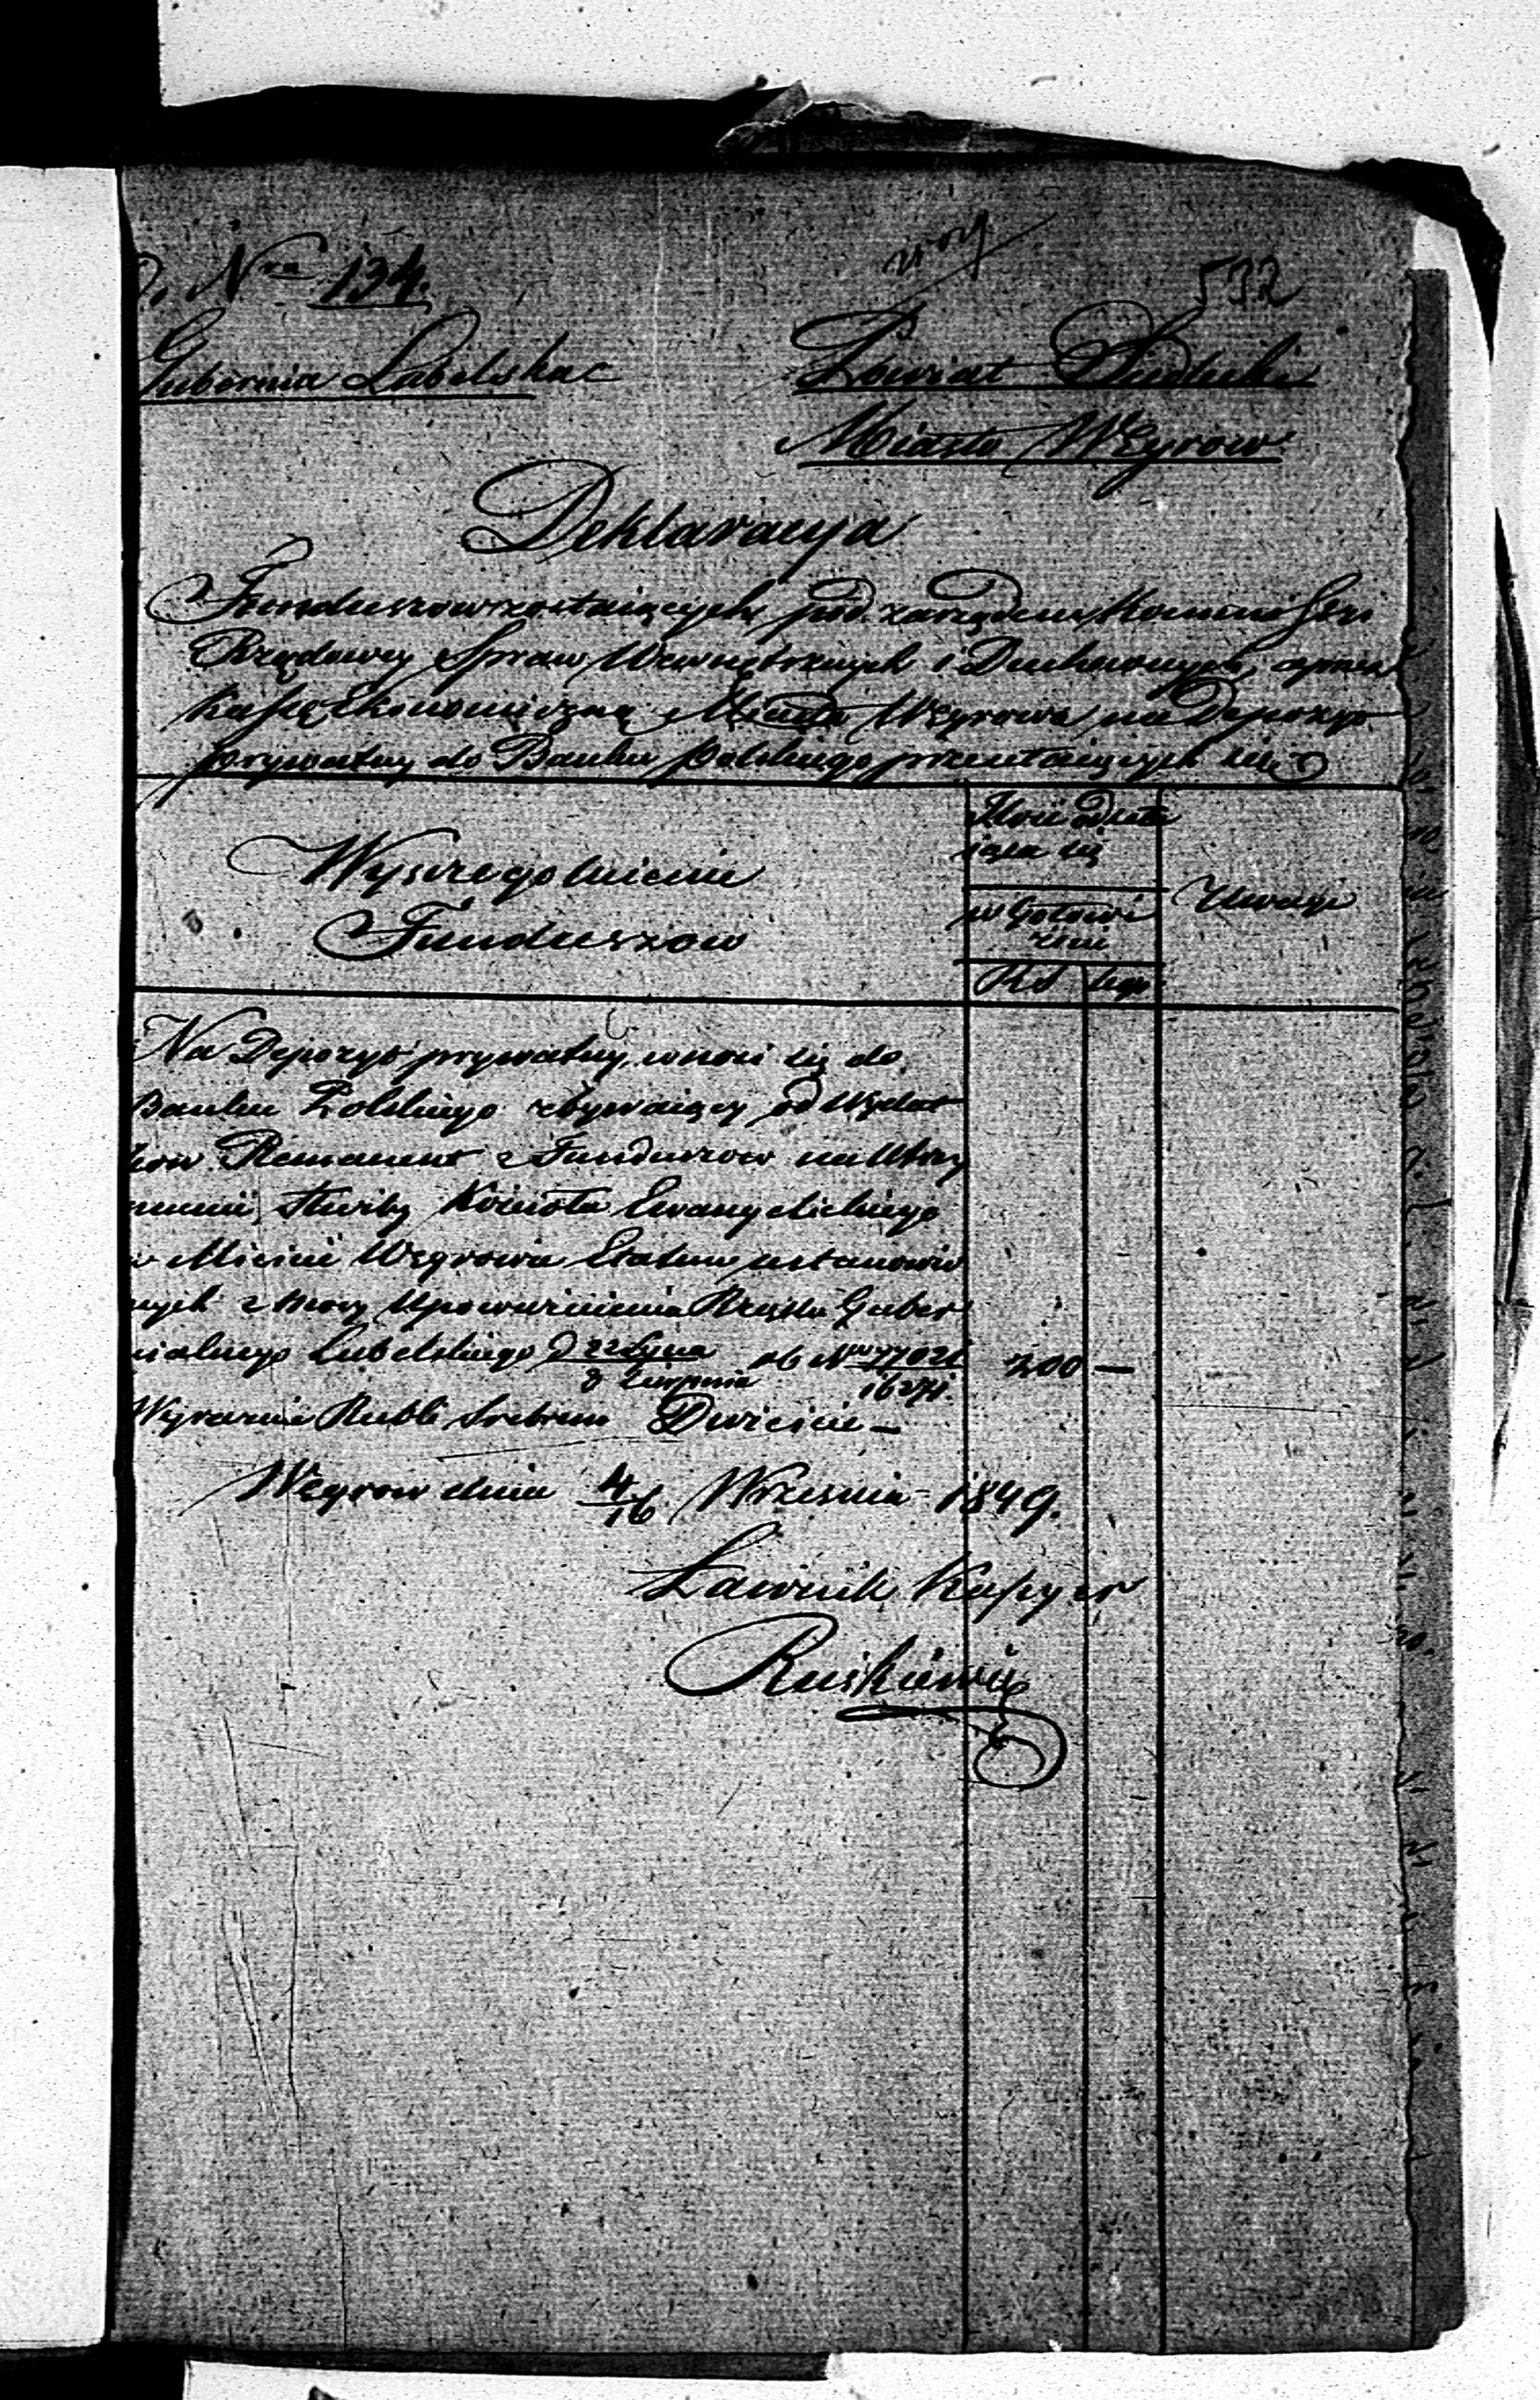 Nro 134.
532
Gubernia Lubelska
Powiat Siedlecki
Miasto Węgrow
Deklaracya
Funduszow zostaiących pod zarządem Kommissyi
Rządowey Spraw Wewnętrznych i Duchownych, przez
Kassę Ekonomiczną Miasta Węgrowa na Depozyt
prywatny do Banku Polskiego przesłaiących się
Wyszczegolnienie
Funduszow
Ilość odsela
iąca się
w Gotowi
znie
Uwagi
RS kop
Na Depozyt prywatny wnosi się do
Banku Polskiego zbywaiący od Wydat
kow Remanent z Funduszow na Utrzy
manie służby Kościoła Ewangelickiego
w Mieście Węgrowie Etatem ustanowio
nych z mocy Upoważnienia Rządu Guber
nialnego Lubelskiego d 22 Lipca / 3 Sierpnia rb Nro 77026 / 16271 200 —
Wyraznie Rubli Srebrem Dwieście —
Węgrow dnia 4/16 Wrzesnia 1849.
Ławnik Kassyer
Ruśkiewicz